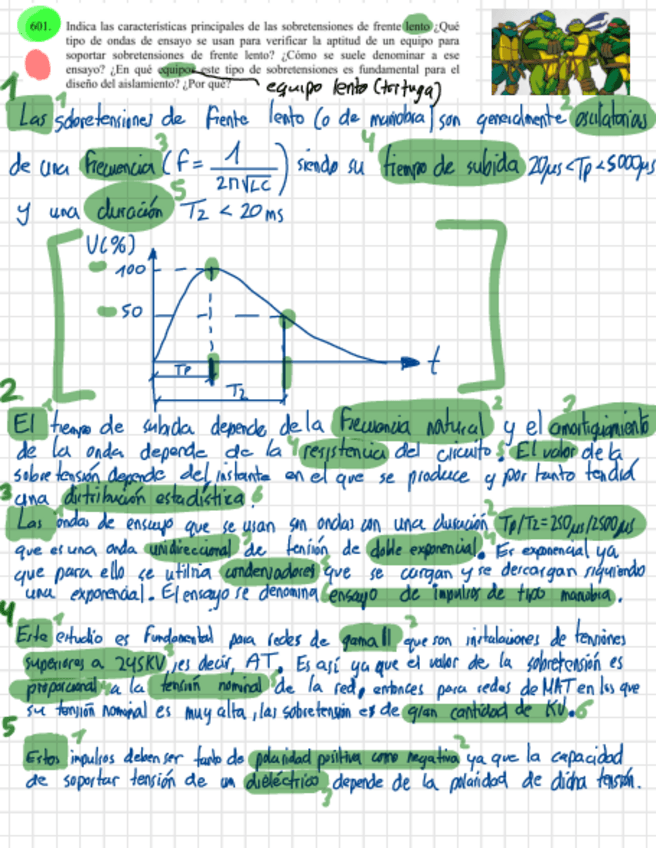 601. Indica las características principales de las sobretensiones de frente lento ¿Qué
tipo de ondas de ensayo se usan para verificar la aptitud de un equipo para
soportar sobretensiones de frente lento? ¿Cómo se suele denominar a ese
ensayo? ¿En qué equipos este tipo de sobretensiones es fundamental para el
diseño del aislamiento? ¿Por qué?
equipo lento (tortuga)
1
Las 1 sobretensiones de frente lento (o de maniobra) son generalmente 2 osculatorias
de una frecuencia 3 (f = 1 / 2π√LC) siendo su 4 tiempo de subida 20μs<Tp<5000μs
y una duración 5 T2 < 20 ms
V(%)
100
50
t
Tp
T2
2
El 1 tiempo de subida depende de la frecuencia natural 2 y el 3 amortiguamiento
de la onda depende de la 4 resistencia del circuito. 5 El valor de la
sobretensión depende del instante en el que se produce y por tanto tendrá
3
una distribución estadística. 6
Las 1 ondas de ensayo que se usan son ondas con una duración 2 Tp/T2=250μs/2500μs
que es una onda unidireccional 3 de tensión de doble exponencial. 4 Es exponencial ya
que para ello se utiliza condensadores 5 que se cargan y se descargan siguiendo
una exponencial. El ensayo se denomina 6 ensayo de impulsos de tipo maniobra.
4
Este 1 estudio es fundamental para redes de gama II 2 que son instalaciones de tensiones
superiores a 245KV 3, es decir, AT. Es así ya que el valor de la sobretensión es
proporcional 4 a la tensión nominal 5 de la red, entonces para redes de MAT en los que
su tensión nominal es muy alta, las sobretensión es de gran cantidad de KV. 6
5
Estos 1 impulsos deben ser tanto de polaridad positiva como negativa 2 ya que la capacidad
de soportar tensión de un dieléctrico 3 depende de la polaridad de dicha tensión.